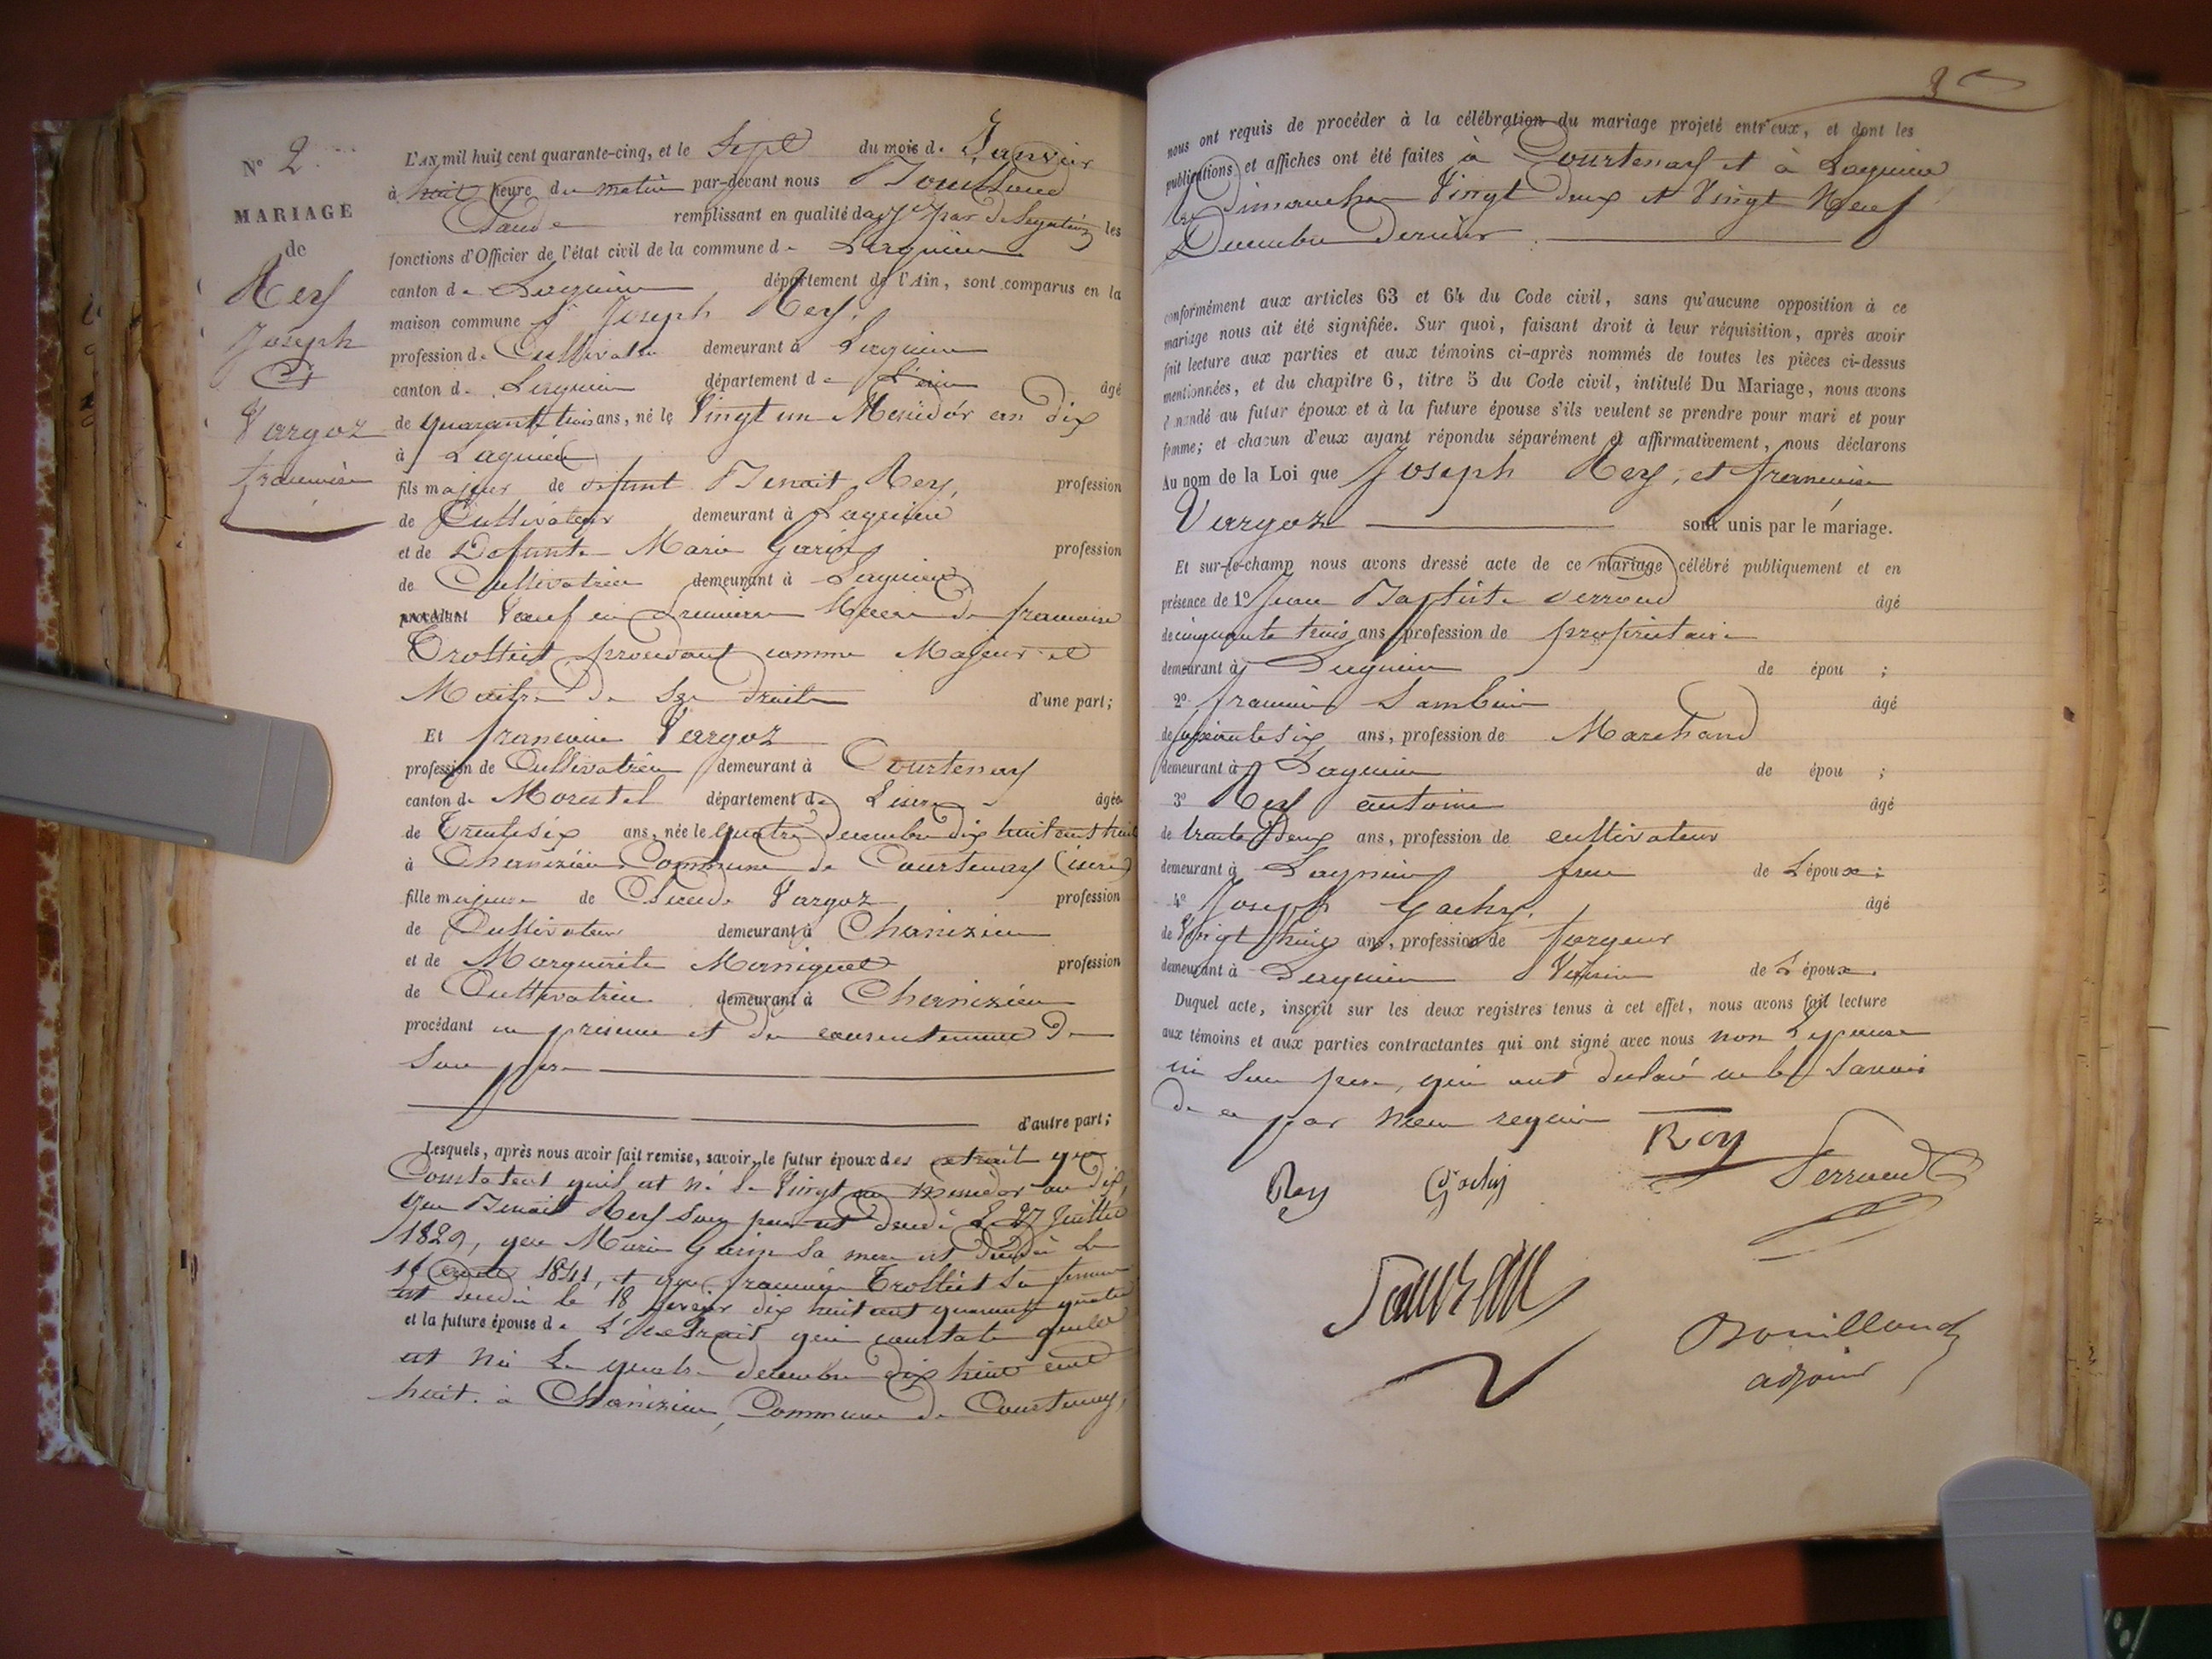 N° 2
MARIAGE
de
Rey
Joseph
Et
Vargoz
francoise
L'AN mil huit cent quarante-cinq, et le Sept du mois de Janvier
à huit heure du matin par-devant nous Bouilloud
Claude remplissant en qualité d'adjt par délégation les
fonctions d'Officier de l'état civil de la commune de Lagnieu
canton de Lagnieu département de l'Ain, sont comparus en la
maison commune Sr Joseph Rey,
profession de Cultivateur demeurant à Lagnieu
canton de Lagnieu département de L'ain âgé
de quarante trois ans, né le Vingt un Messidor an dix
à Lagnieu
fils majeur de defunt Benoit Rey, profession
de Cultivateur demeurant à Lagnieu
et de Defunte Marie Garin profession
de Cultivatrice demeurant à Lagnieu
procédant Veuf en premiere Noces de francoise
Trolliet procedant comme Majeur et
Maitre de Ses droits d'une part;
Et francoise Vargoz
profession de Cultivatrice demeurant à Courtenay
canton de Morestel département de Lisere âgée
de Trente six ans, née le quatre decembre dix huit cent huit
à Chanizieu Commune de Courtenay (isere)
fille majeure de Claude Vargoz profession
de Cultivateur demeurant à Chanizieu
et de Marguerite Merniguet profession
de Cultivatrice demeurant à Chanizieu
procédant en presence et du consentement de
Son pere
d'autre part;
Lesquels, après nous avoir fait remise, savoir, le futur époux des extrait qui
Constatent quil est né le Vingt un messidor an dix,
que Benoit Rey son pere est decedé le 27 Juillet
1829, que Marie Garin Sa mere est decedée le
1841, et que francoise Trolliet Sa femme
est decedée le 18 fevrier dix huit cent quarante quatre
et la future épouse de L'extrait qui constate quelle
est née le quatre decembre dix huit cent
huit à Chanizieu, Commune de Courtenay,
nous ont requis de procéder à la célébration du mariage projeté entr'eux, et dont les
publications et affiches ont été faites à Courtenay et à Lagnieu
les dimanches Vingt deux et Vingt Neuf
Decembre dernier.
conformément aux articles 63 et 64 du Code civil, sans qu'aucune opposition à ce
mariage nous ait été signifiée. Sur quoi, faisant droit à leur réquisition, après avoir
fait lecture aux parties et aux témoins ci-après nommés de toutes les pièces ci-dessus
mentionnées, et du chapitre 6, titre 5 du Code civil, intitulé Du Mariage, nous avons
demandé au futur époux et à la future épouse s'ils veulent se prendre pour mari et pour
femme; et chacun d'eux ayant répondu séparément et affirmativement, nous déclarons
Au nom de la Loi que Joseph Rey, et francoise
Vargoz sont unis par le mariage.
Et sur-le-champ nous avons dressé acte de ce mariage célébré publiquement et en
présence de 1° Jean Baptiste verroud âgé
de cinquante trois ans, profession de propriétaire
demeurant à Lagnieu de épou ;
2° francois Sambin âgé
de ans, profession de Marchand
demeurant à Lagnieu de épou ;
3° Rey antoine âgé
de trente deux ans, profession de cultivateur
demeurant à Lagnieu frere de L'époux;
4° Joseph Gachy, âgé
de Vingt huit ans, profession de forgeur
demeurant à Lagnieu Voisin de L'époux.
Duquel acte, inscrit sur les deux registres tenus à cet effet, nous avons fait lecture
aux témoins et aux parties contractantes qui ont signé avec nous non L'epouse
ni Son pere, qui ont declaré ne le Savoir
de ce par Nous requis
Rey
Rey Gachy Verroud
Bouilloud
adjoint